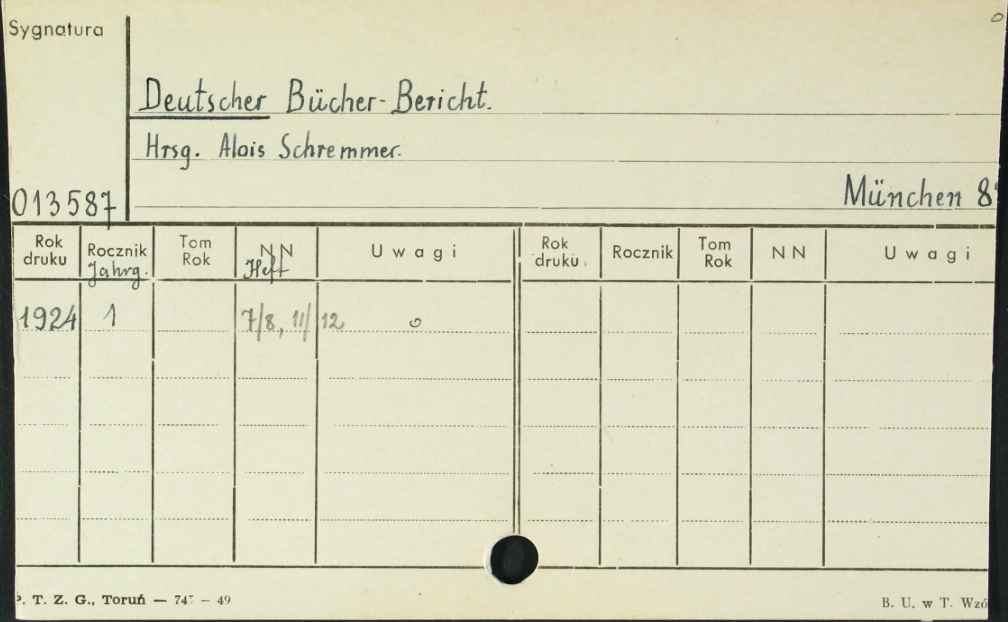 Sygnatura
Deutscher Bücher-Bericht.
Hrsg. Alois Schremmer.
013587
München 8
Rok druku Rocznik Jahrg. Tom Rok NN Heft Uwagi Rok druku Rocznik Tom Rok NN Uwagi
1924 1 7/8, 11/12
T. Z. G., Toruń — 49
B. U. w T.